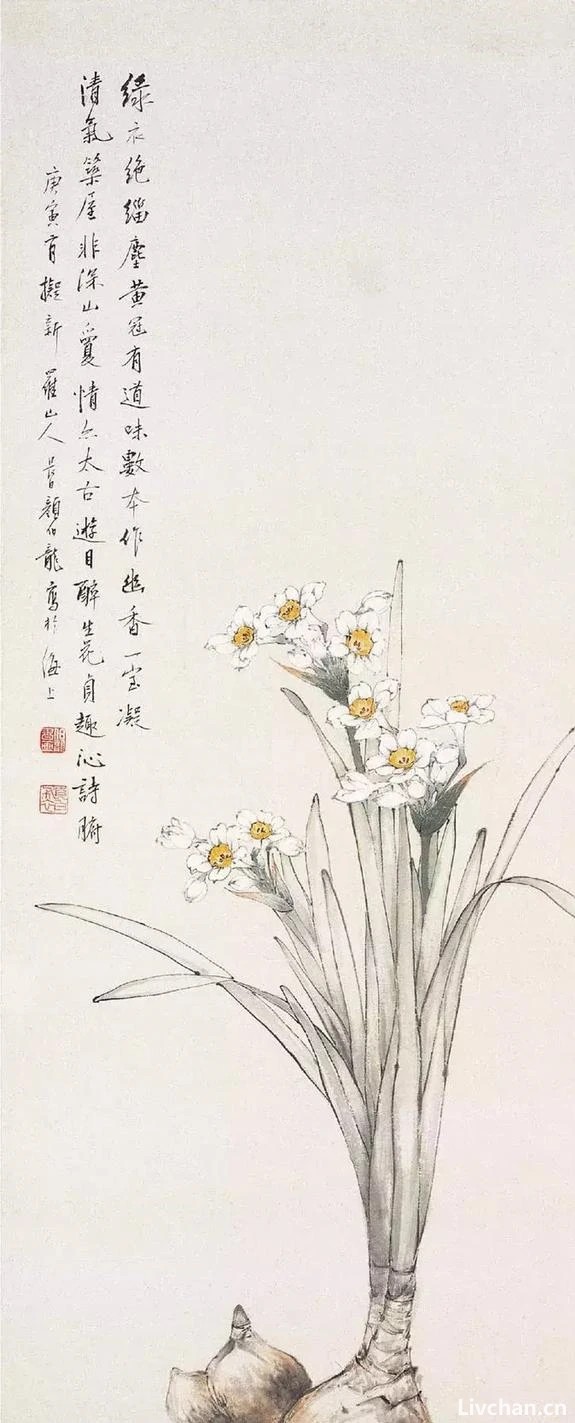 綠衣絕緇塵黃冠有道味數本作幽香一室凝
清氣築屋非深山情太古遊目醉生花趣沁詩腑
庚寅擬新羅山人顏伯龍寫於海上
Livchan.cn